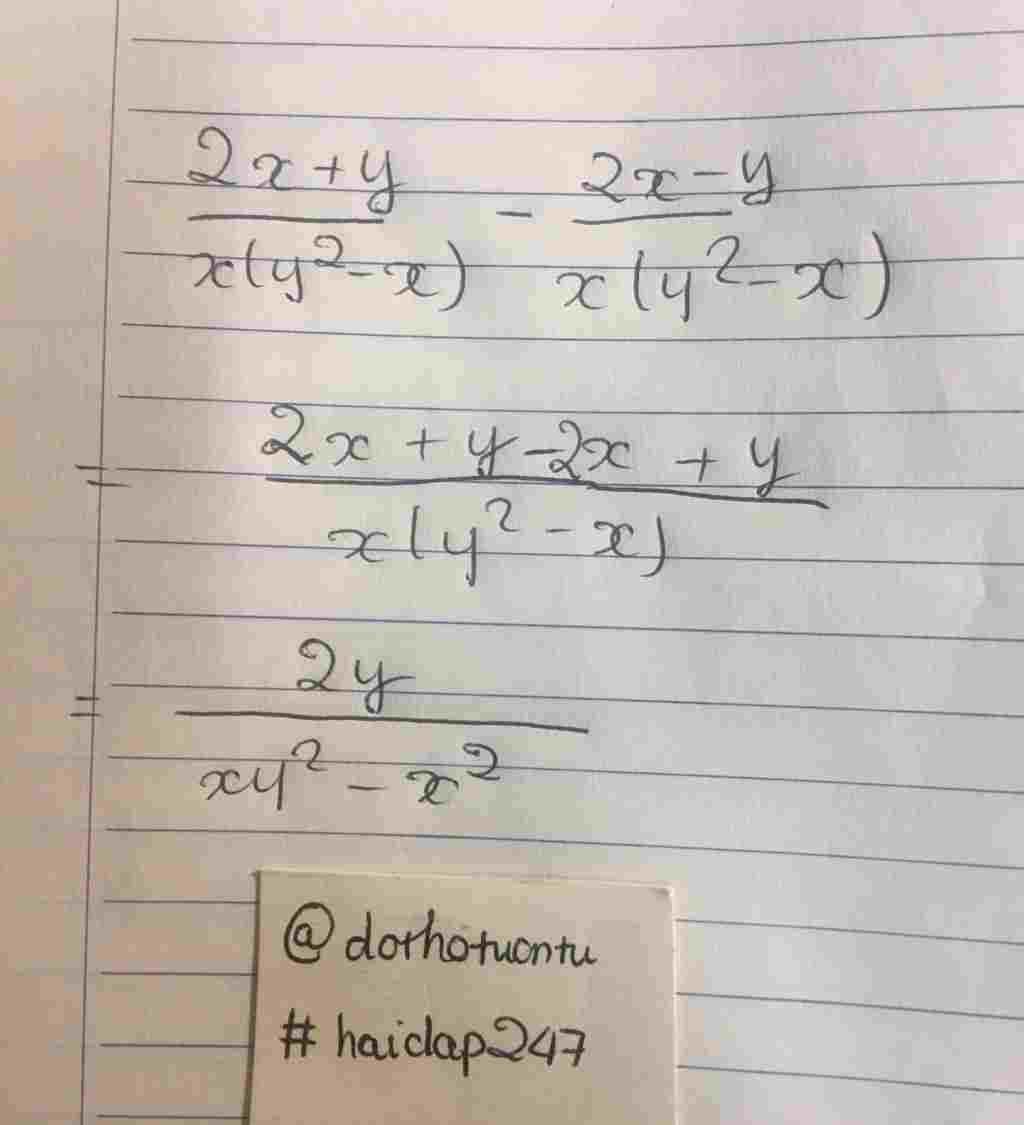 2x + y / x(y² - x) - 2x - y / x(y² - x)
= 2x + y - 2x + y / x(y² - x)
= 2y / xy² - x²
@dothotuontu
# haidap247